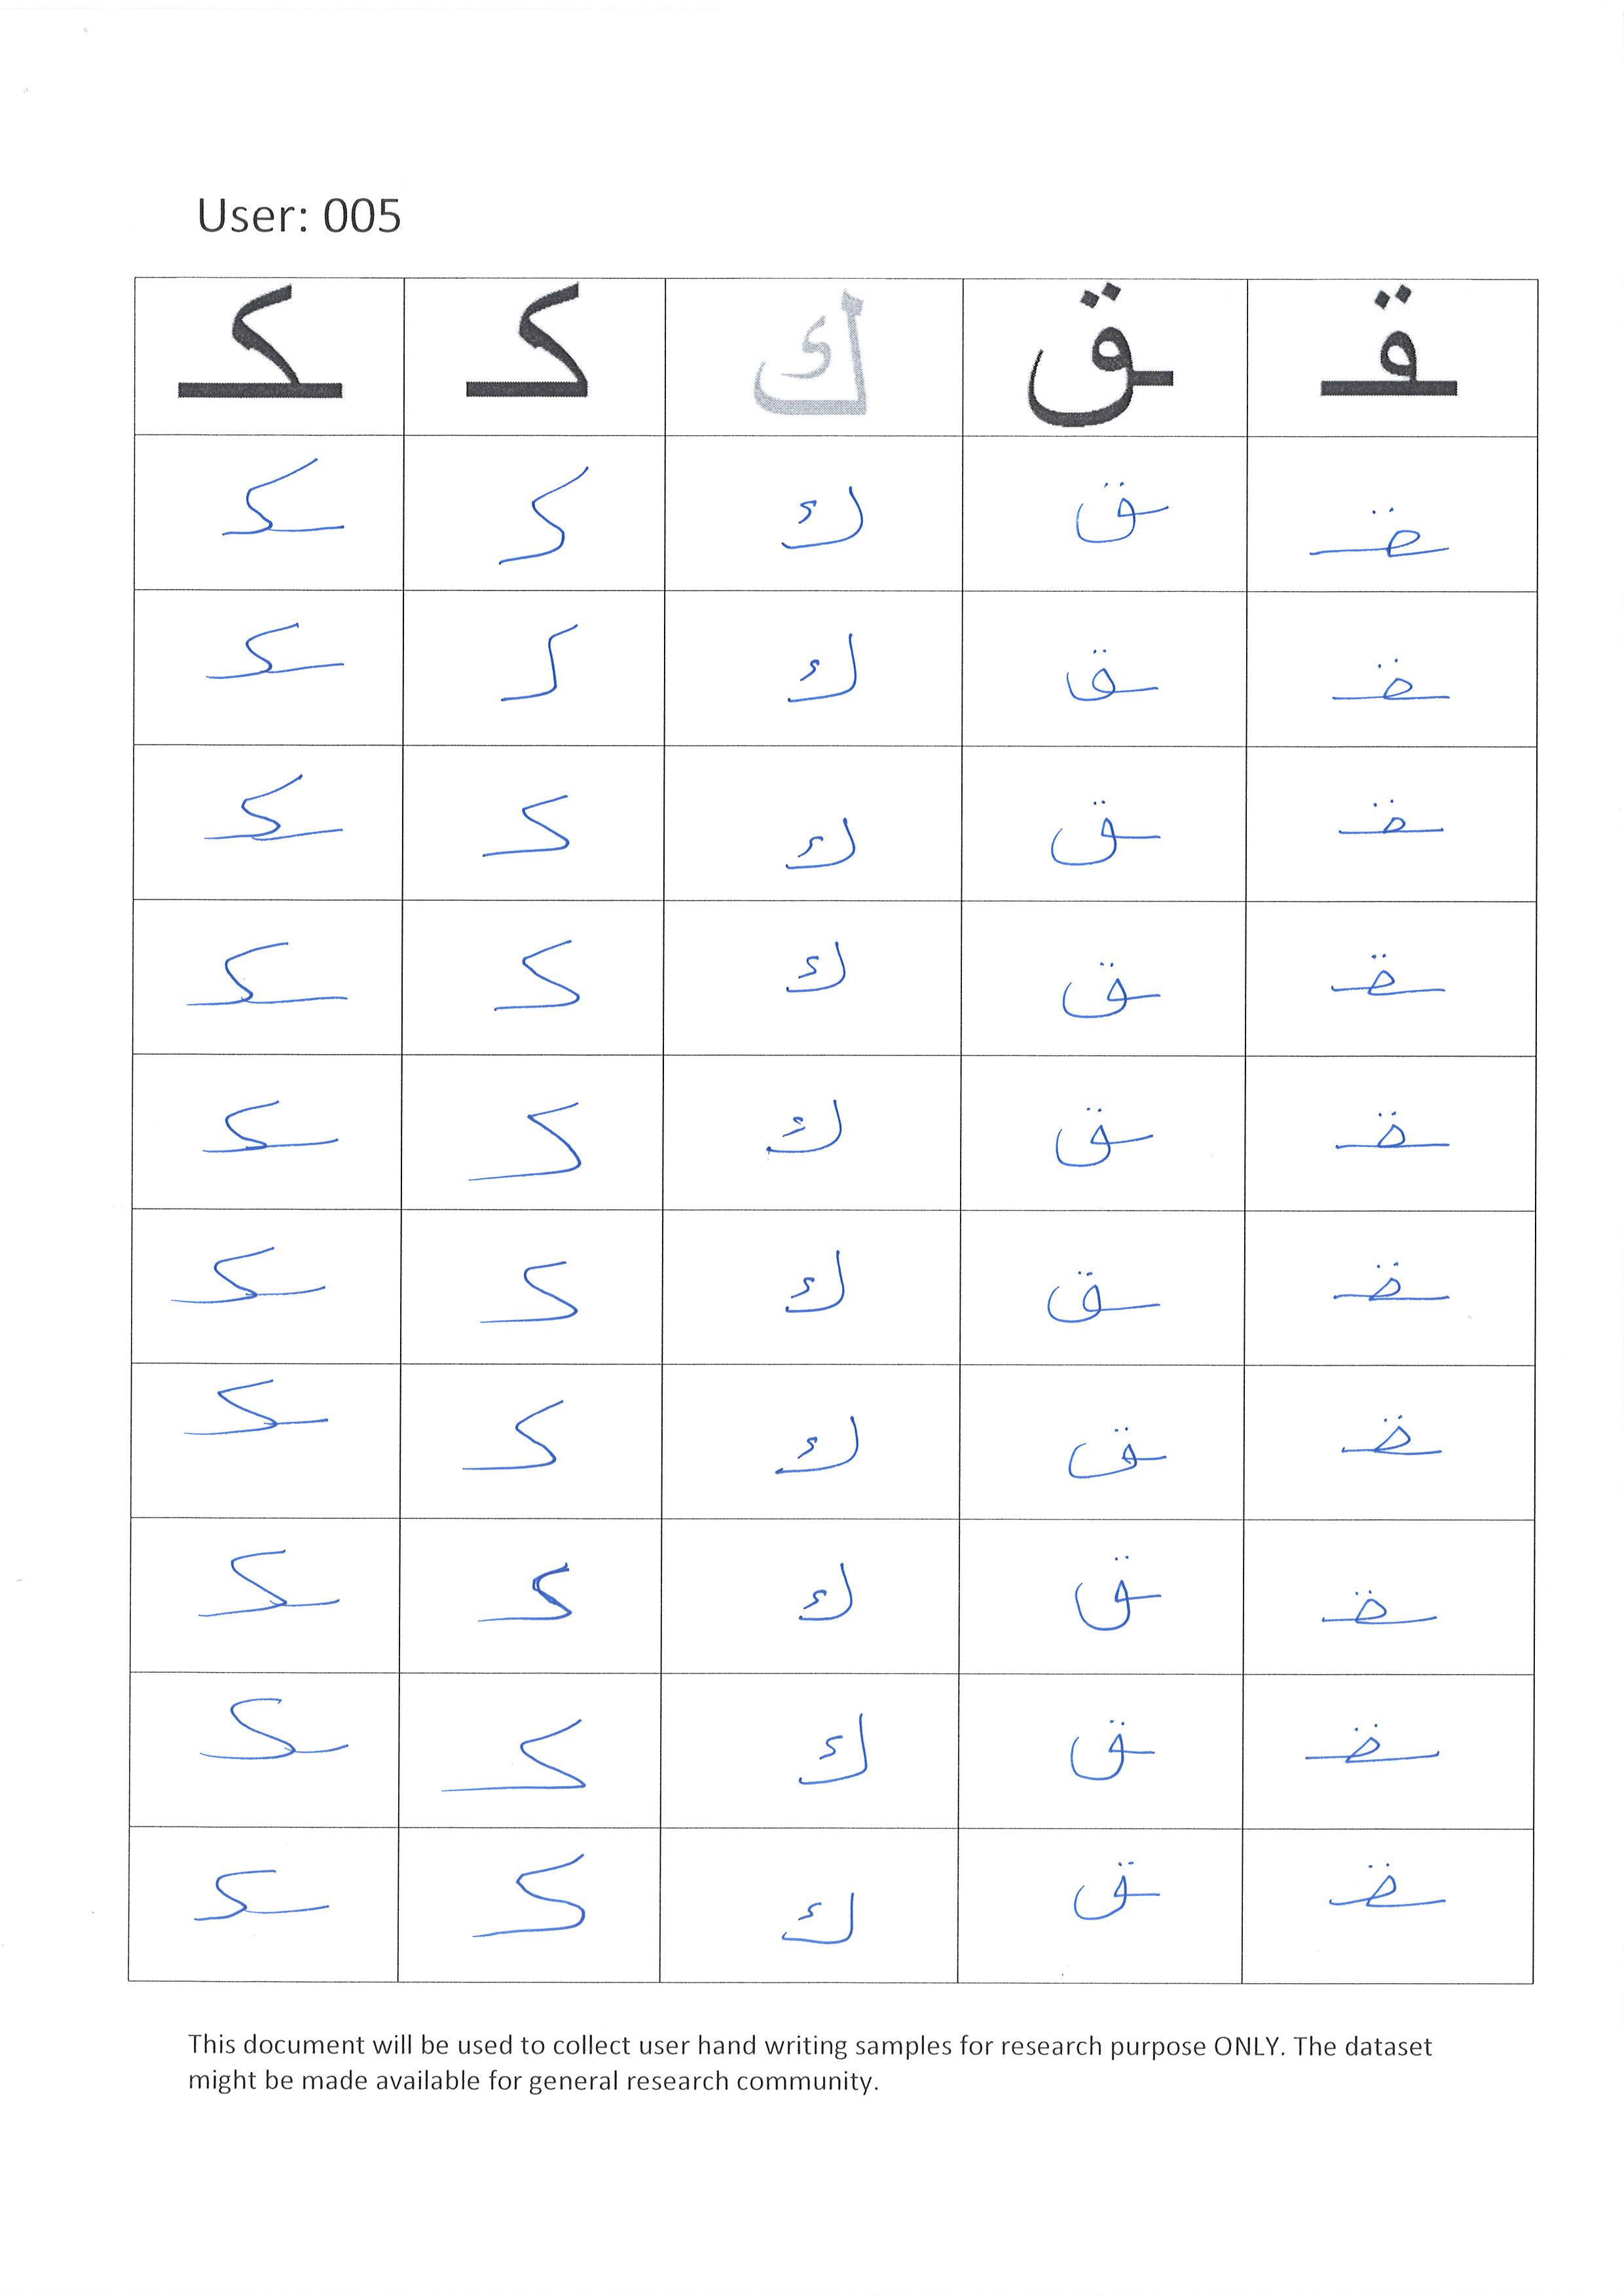 User: 005
ـكـ كـ ك ـق ـقـ
ـكـ كـ ك ـق ـقـ
ـكـ كـ ك ـق ـقـ
ـكـ كـ ك ـق ـقـ
ـكـ كـ ك ـق ـقـ
ـكـ كـ ك ـق ـقـ
ـكـ كـ ك ـق ـقـ
ـكـ كـ ك ـق ـقـ
ـكـ كـ ك ـق ـقـ
ـكـ كـ ك ـق ـقـ
ـكـ كـ ك ـق ـقـ
This document will be used to collect user hand writing samples for research purpose ONLY. The dataset
might be made available for general research community.